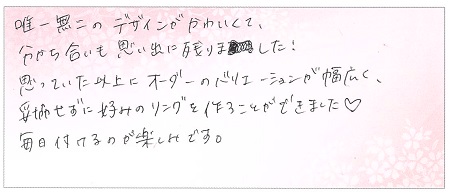 唯一無二のデザインがかわいくて、
分かち合いも思い出に残りました!
思っていた以上にオーダーのバリエーションが幅広く、
妥協せずに好みのリングを作ることができました♡
毎日付けるのが楽しみです。